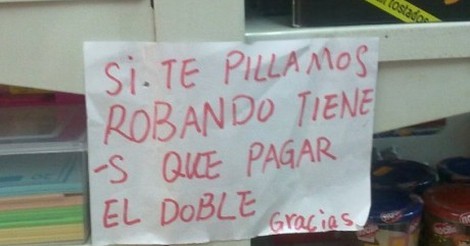 tostados
SI TE PILLAMOS
ROBANDO TIENE
-S QUE PAGAR
EL DOBLE
Gracias.